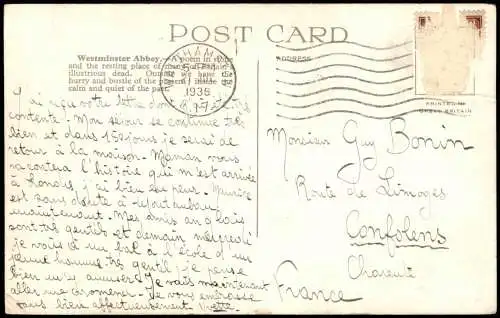 POST CARD
Westminster Abbey.—A poem in stone
and the resting place of many of Britain's
illustrious dead. Outside we have the
hurry and bustle of the present; inside the
calm and quiet of the past.
1936
ADDRESS
PRINTED IN
GREAT BRITAIN
J'ai reçu votre lettre dont je suis très
contente. Mon séjour se continue très
bien et dans 15 jours je serai de
retour à la maison. Maman vous
racontera l'histoire qui m'est arrivée
à Londres, j'ai bien eu peur. Maurice
est sans doute à
maintenant. Mes amis anglais
sont très gentils et demain mercredi
je vais à un bal à l'école d'un
jeune homme très gentil, je pense
bien m'y amuser. Je vais maintenant
aller me promener. Je vous embrasse
tous bien affectueusement
Monsieur Guy Bonin
Route de Limoges
Confolens
Charente
France